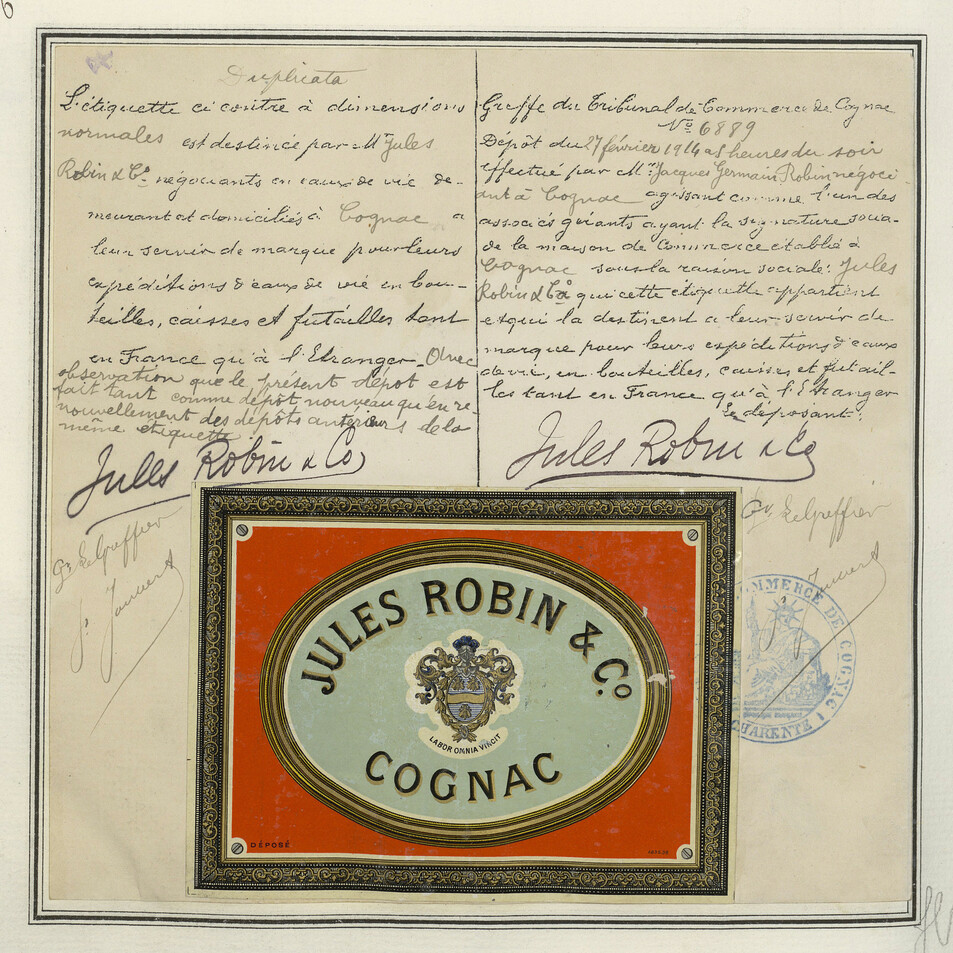 Duplicata
L'étiquette ci contre à dimensions
normales est destinée par Mr Jules
Robin & Co négociants en eaux de vie de-
meurant et domiciliés à Cognac a
leur servir de marque pour leurs
expéditions d'eaux de vie en bou-
teilles, caisses et futailles tant
en France qu'à l'Etranger. Avec
observation que le présent dépôt est
fait tant comme dépôt nouveau qu'en re-
nouvellement des dépôts antérieurs de la
même etiquette.
Jules Robin & Co
Le Greffier
Greffe du Tribunal de Commerce de Cognac
No 6889
Dépôt du 27 février 1914 a 5 heures du soir
effectué par Mr Jacques Germain Robin négoci-
ant à Cognac agissant comme l'un des
associés gérants ayant la signature socia-
le de la maison de Commerce établie à
Cognac sous la raison sociale: Jules
Robin & Co à qui cette etiquette appartient
et qui la destinent a leur servir de
marque pour leurs expéditions d'eaux
de vie, en bouteilles, caisses et futail-
les tant en France qu'à l'Etranger
Le déposant:
Jules Robin & Co
Le Greffier
COMMERCE DE COGNAC
CHARENTE
JULES ROBIN & Co.
LABOR OMNIA VINCIT
COGNAC
DÉPOSÉ